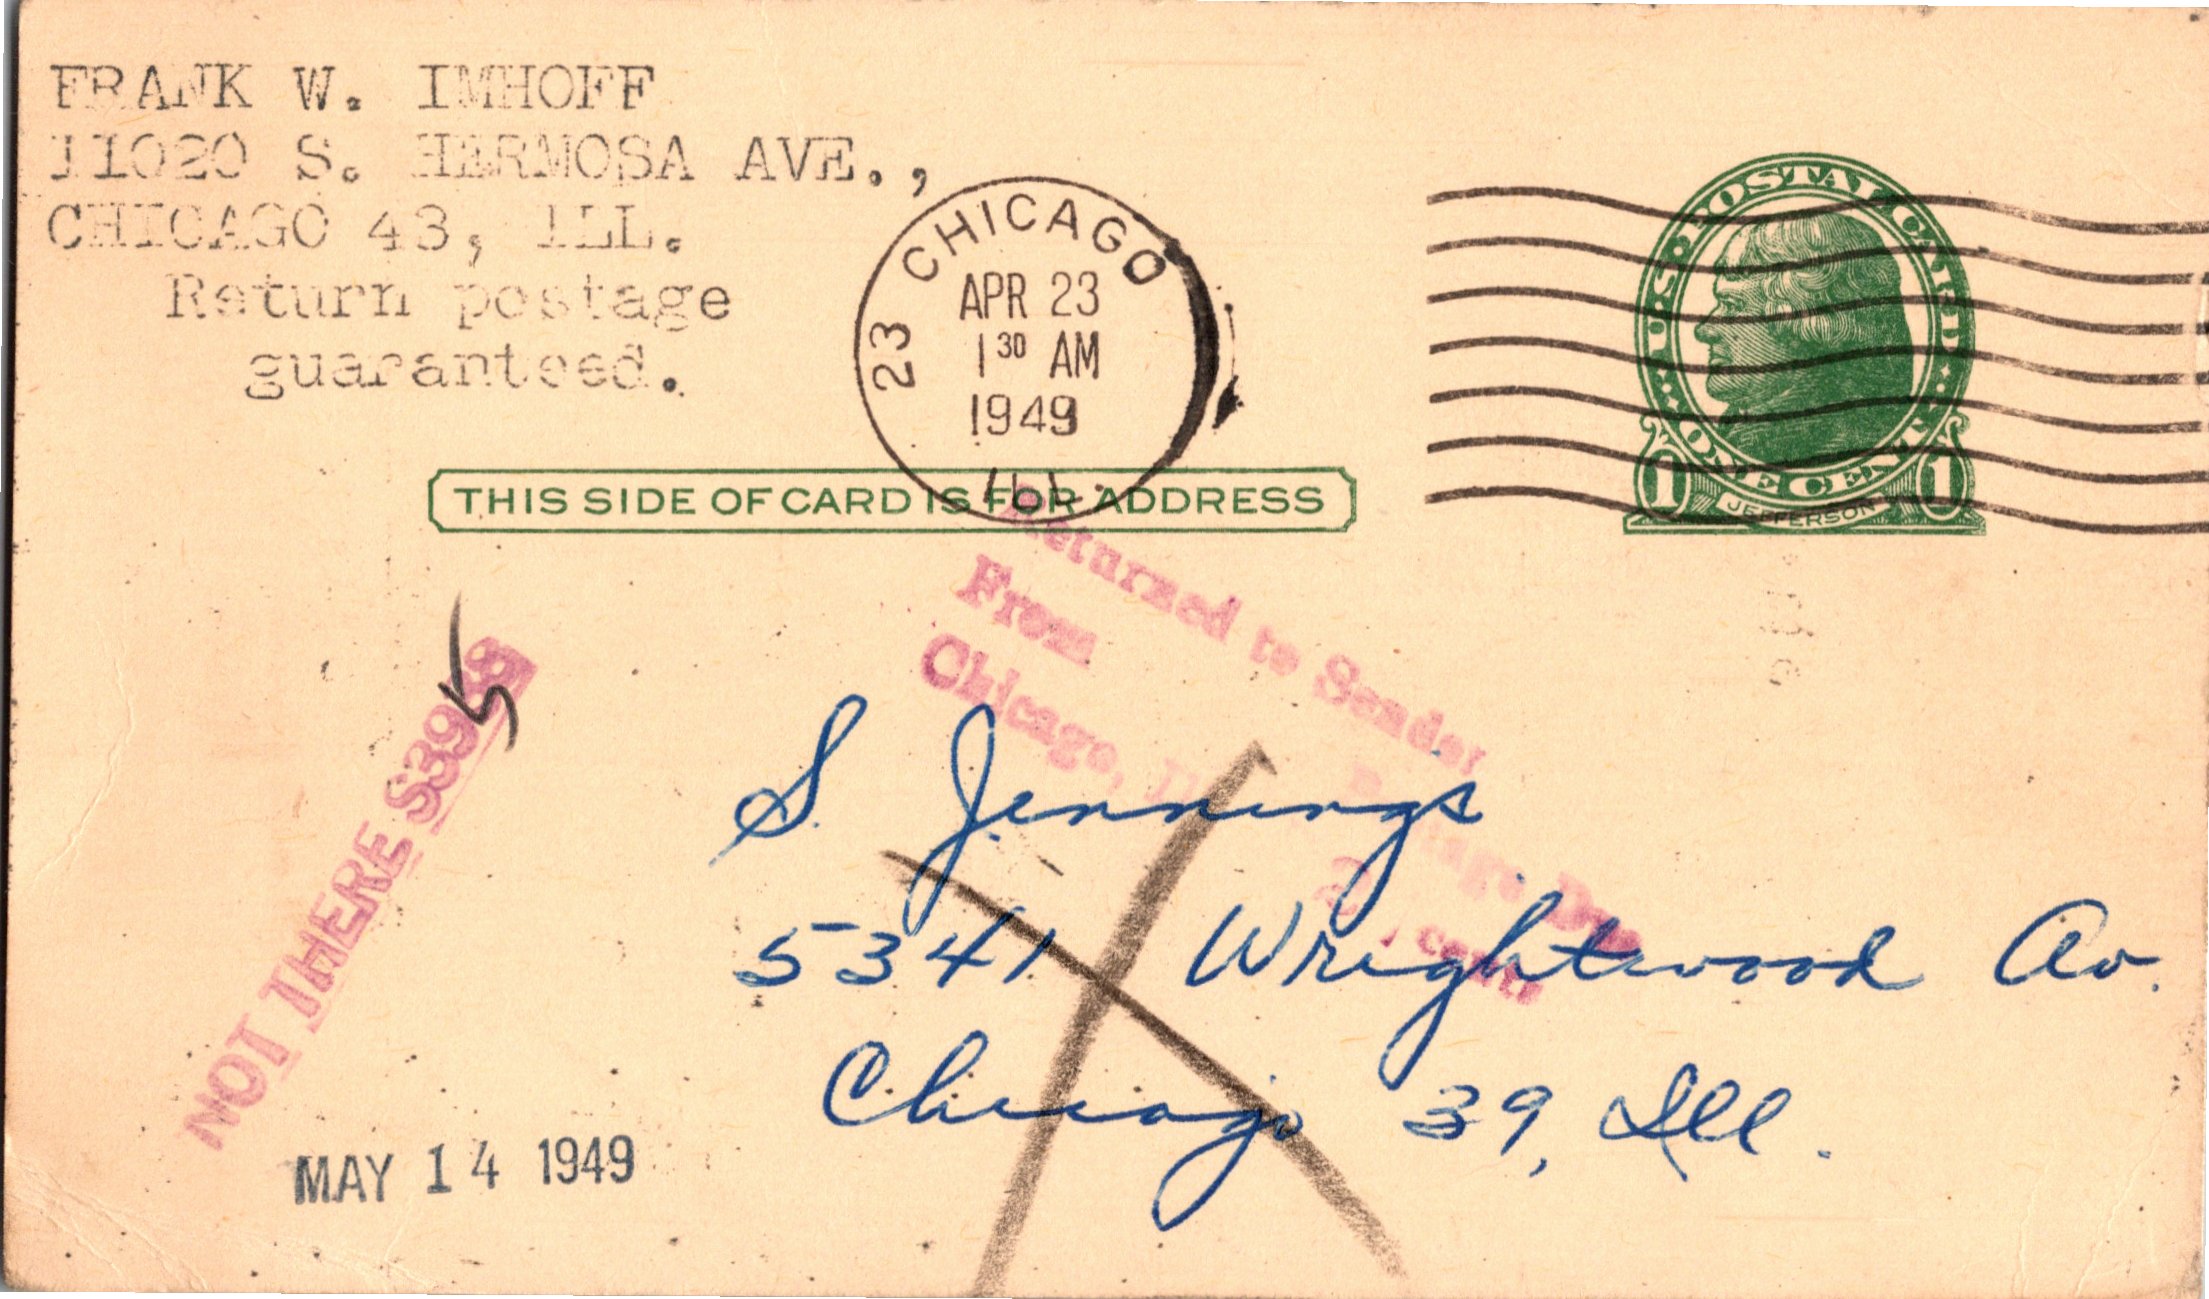 FRANK W. IMHOFF
11020 S. HERMOSA AVE.,
CHICAGO 43, ILL.
Return postage
guaranteed.
CHICAGO
23
APR 23
1 30 AM
1949
ILL.
U.S. POSTAL CARD
ONE CENT
1 JEFFERSON 1
THIS SIDE OF CARD IS FOR ADDRESS
Returned to Sender
From
Chicago, Ill
Postage Due
2 cents
NOT THERE
MAY 14 1949
S. Jennings
5341 Wrightwood Av.
Chicago 39, Ill.